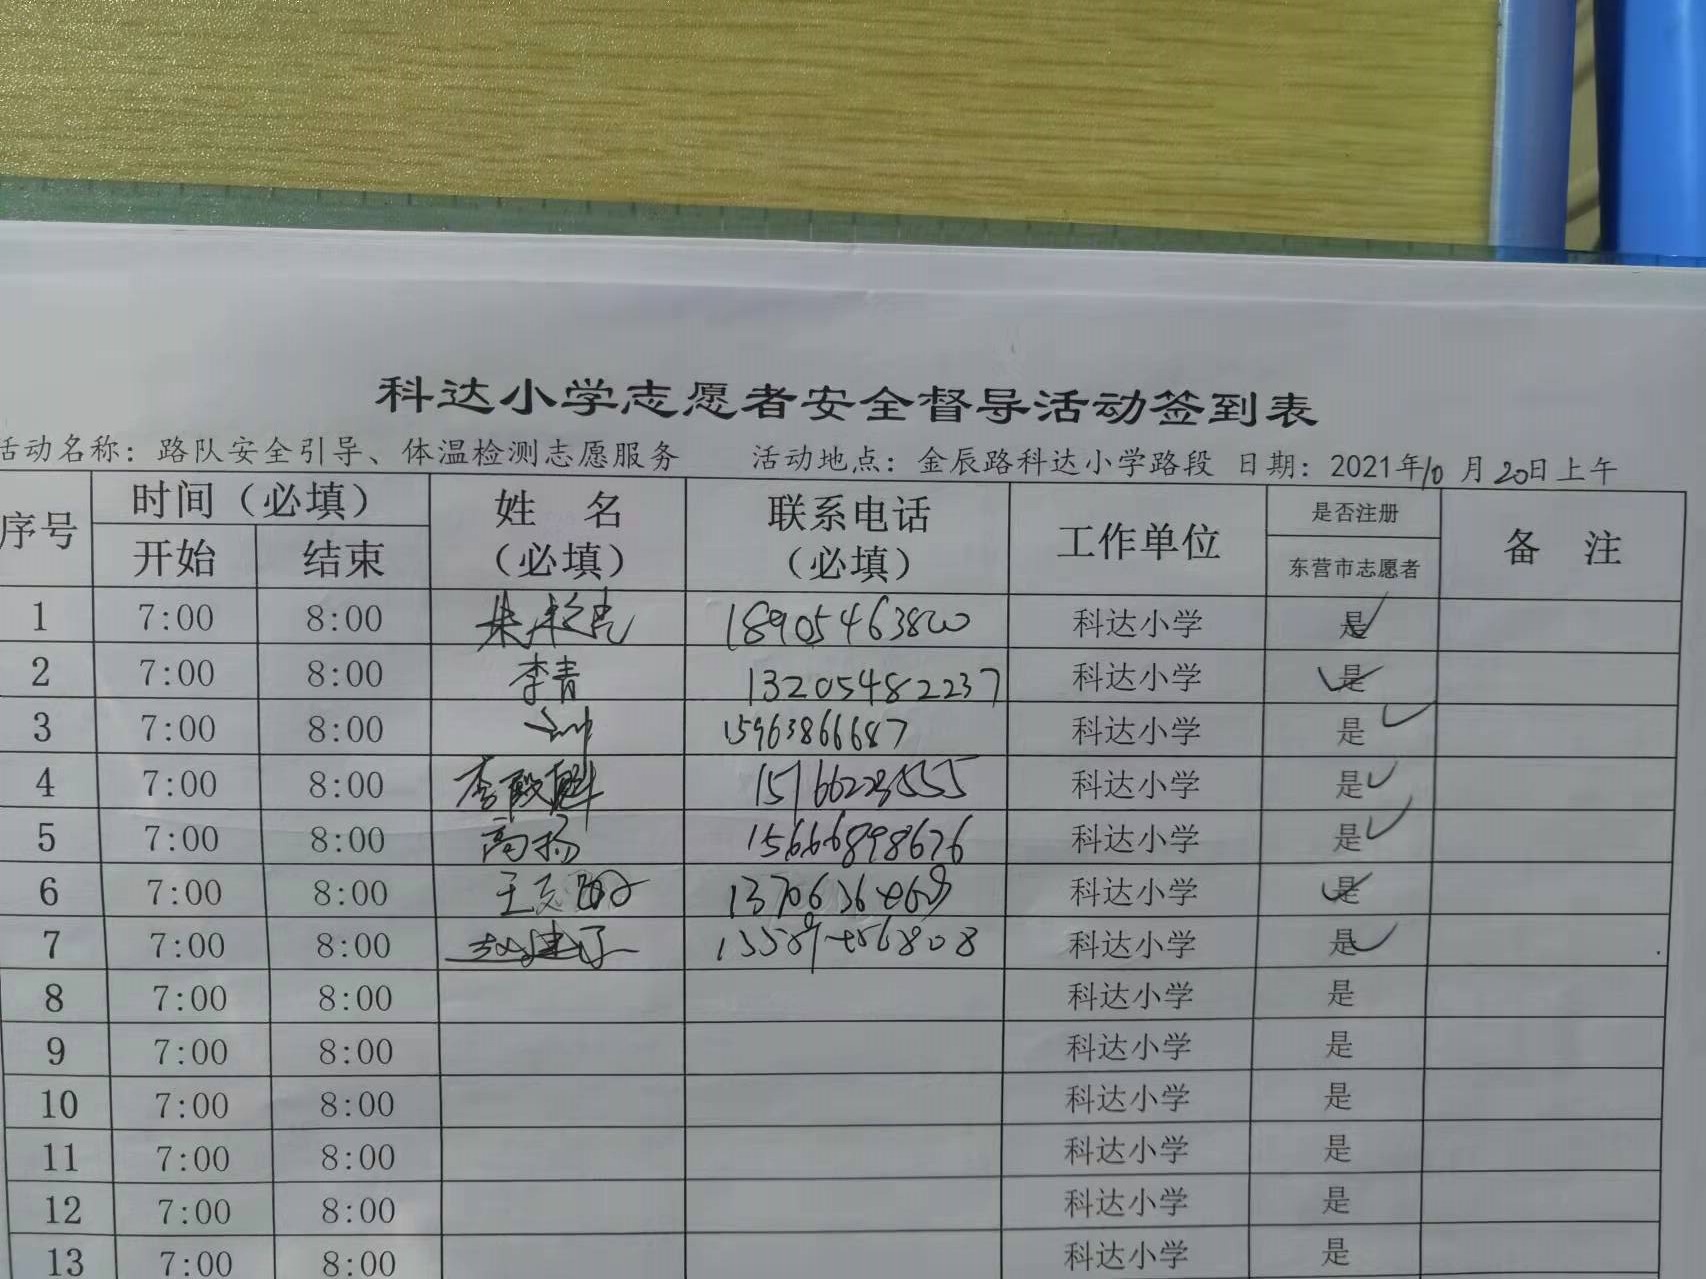 科达小学志愿者安全督导活动签到表
活动名称：路队安全引导、体温检测志愿服务 活动地点：金辰路科达小学路段 日期：2021年10月20日上午
序号 时间（必填） 姓 名（必填） 联系电话（必填） 工作单位 是否注册 备 注
开始 结束 东营市志愿者
1 7:00 8:00 18905463800 科达小学 是✓
2 7:00 8:00 李青 13205482237 科达小学 是✓
3 7:00 8:00 15963866687 科达小学 是✓
4 7:00 8:00 李殿魁 科达小学 是✓
5 7:00 8:00 高扬 15666898676 科达小学 是✓
6 7:00 8:00 王 科达小学 是✓
7 7:00 8:00 科达小学 是✓
8 7:00 8:00 科达小学 是
9 7:00 8:00 科达小学 是
10 7:00 8:00 科达小学 是
11 7:00 8:00 科达小学 是
12 7:00 8:00 科达小学 是
13 7:00 8:00 科达小学 是